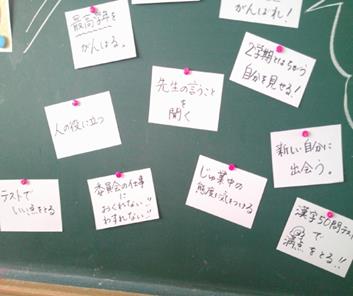 最高学年を
がんばる。
がんばれ!
2学期とはちがう
自分を見せる!
先生の言うこと
を
聞く
人の役に立つ
新しい自分に
出会う。
テストで
いい点をとる
委員会の仕事
に
おくれない!!
わすれない!!
じゅ業中の
態度に気をつける
漢字50問テスト
で
満点をとる!!